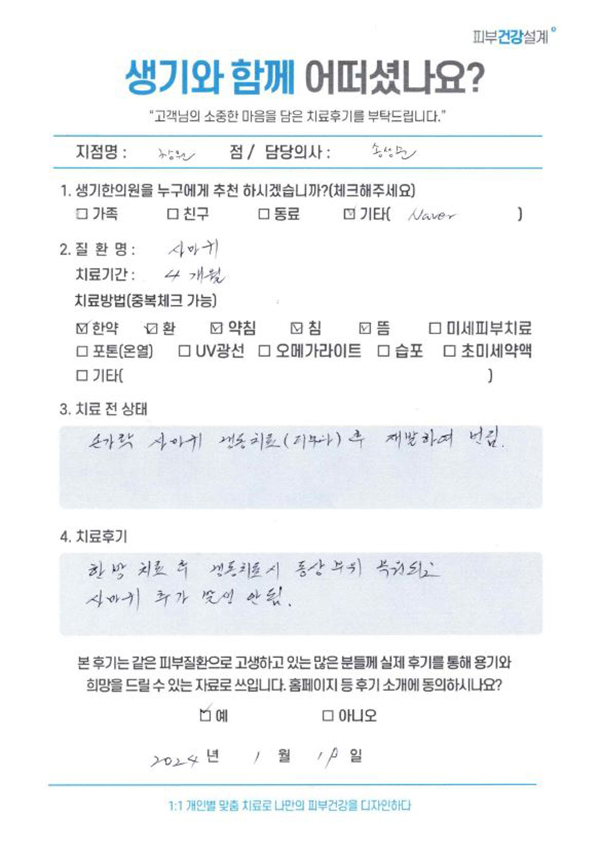 피부건강설계
생기와 함께 어떠셨나요?
"고객님의 소중한 마음을 담은 치료후기를 부탁드립니다."
지점명 : 창원 점 / 담당의사 :
1. 생기한의원을 누구에게 추천 하시겠습니까?(체크해주세요)
☐ 가족 ☐ 친구 ☐ 동료 ☑ 기타( Naver )
2. 질 환 명 : 사마귀
치료기간 : 4 개월
치료방법(중복체크 가능)
☑ 한약 ☑ 환 ☑ 약침 ☑ 침 ☑ 뜸 ☐ 미세피부치료
☐ 포톤(온열) ☐ UV광선 ☐ 오메가라이트 ☐ 습포 ☐ 초미세약액
☐ 기타( )
3. 치료 전 상태
손가락 사마귀 냉동치료(피부과) 후 재발하여 번짐.
4. 치료후기
한방 치료 후 냉동치료시 동상 부위 복원되고
사마귀 추가 발생 안됨.
본 후기는 같은 피부질환으로 고생하고 있는 많은 분들께 실제 후기를 통해 용기와
희망을 드릴 수 있는 자료로 쓰입니다. 홈페이지 등 후기 소개에 동의하시나요?
☑ 예 ☐ 아니오
2024 년 1 월 19 일
1:1 개인별 맞춤 치료로 나만의 피부건강을 디자인하다